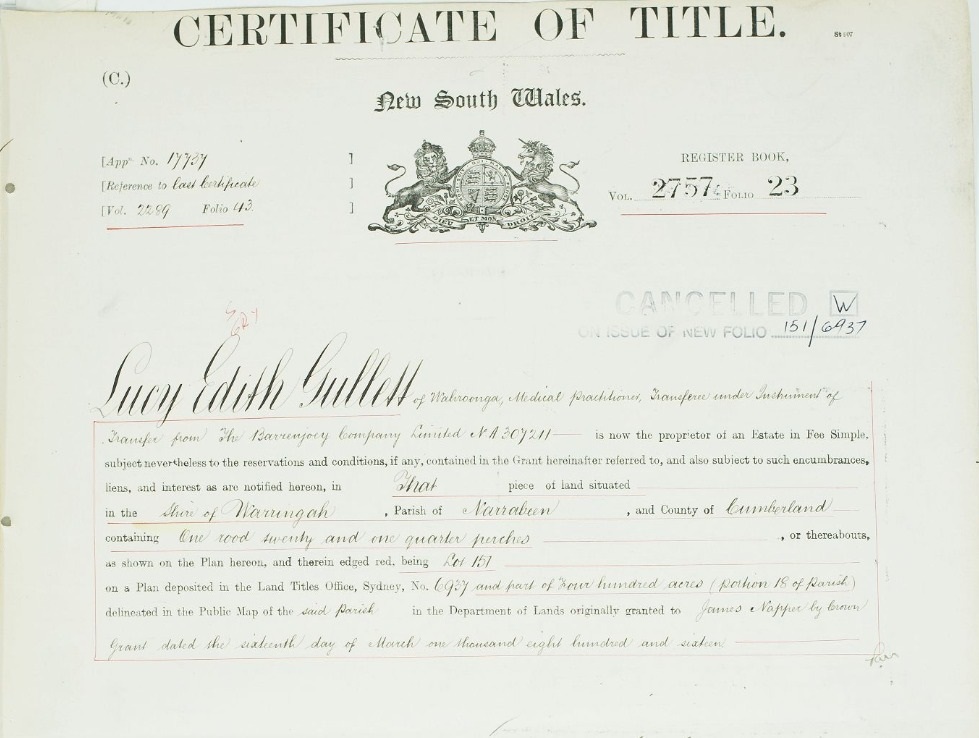 CERTIFICATE OF TITLE.
(C.)
New South Wales.
[Appn. No. 17737 ]
REGISTER BOOK,
[Reference to Last Certificate ]
VOL. 2757 FOLIO 23
[Vol. 2289 Folio 43. ]
CANCELLED W
ON ISSUE OF NEW FOLIO 151/6937
Lucy Edith Gullett of Wahroonga, Medical Practitioner, Transferee under Instrument of
Transfer from The Barrenjoey Company Limited No A307211 is now the proprietor of an Estate in Fee Simple,
subject nevertheless to the reservations and conditions, if any, contained in the Grant hereinafter referred to, and also subject to such encumbrances,
liens, and interest as are notified hereon, in That piece of land situated
in the Shire of Warringah, Parish of Narrabeen, and County of Cumberland
containing One rood twenty and one quarter perches, or thereabouts,
as shown on the Plan hereon, and therein edged red, being Lot 151
on a Plan deposited in the Land Titles Office, Sydney, No. 6937 and part of Four hundred acres (portion 18 of Parish)
delineated in the Public Map of the said Parish in the Department of Lands originally granted to James Napper by Crown
Grant dated the sixteenth day of March one thousand eight hundred and sixteen.